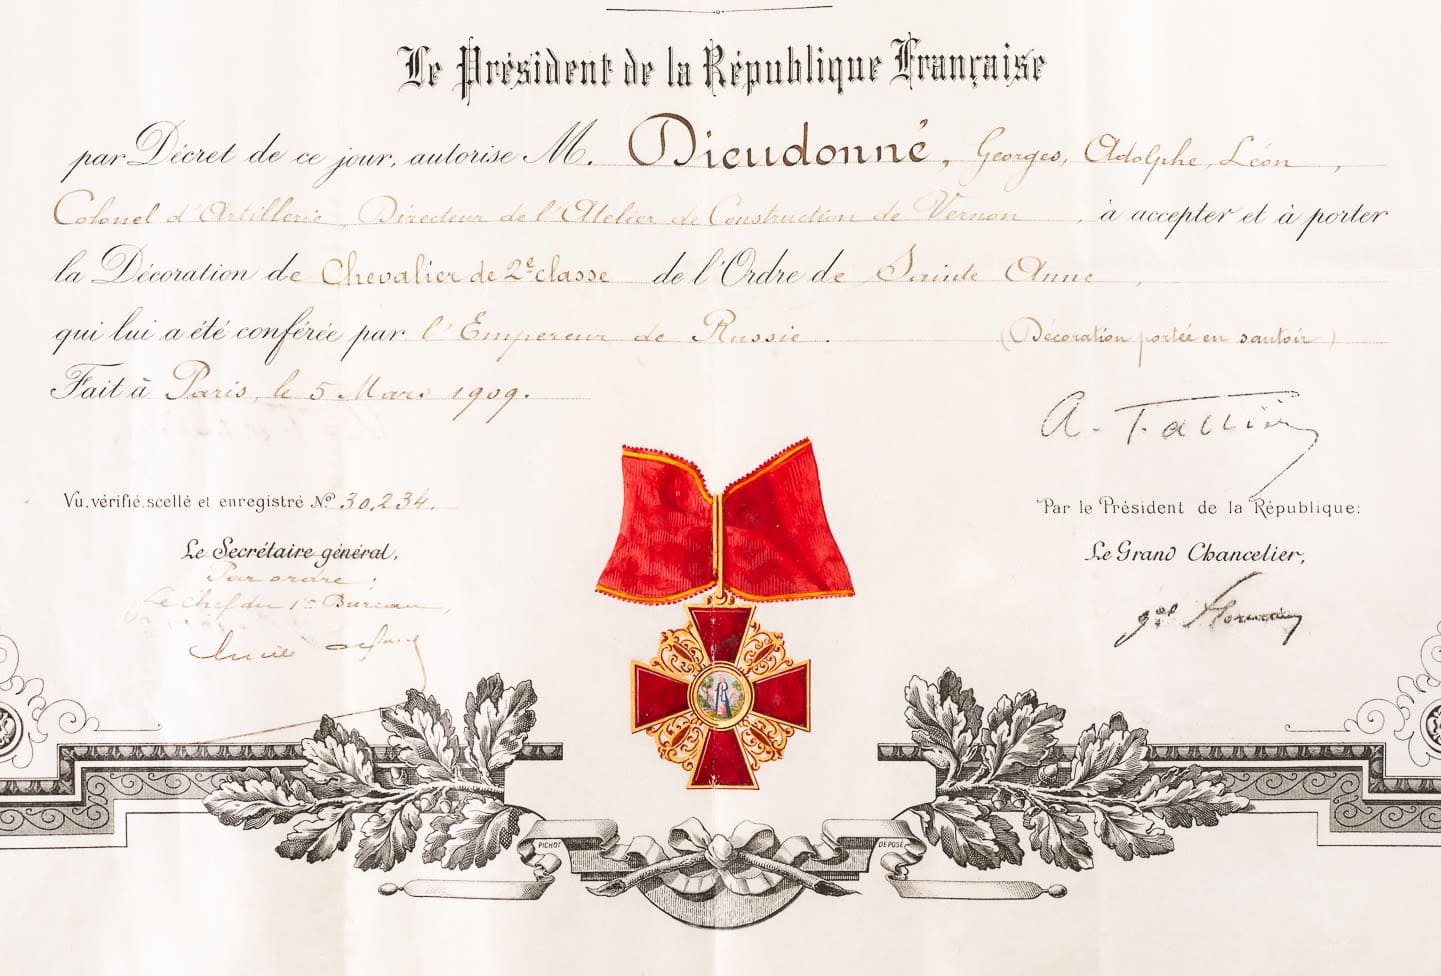 Le Président de la République Française
par Décret de ce jour, autorise M. Dieudonné, Georges, Adolphe, Léon,
Colonel d'Artillerie, Directeur de l'Atelier de Construction de Vernon, à accepter et à porter
la Décoration de Chevalier de 2e classe de l'Ordre de Sainte Anne,
qui lui a été conférée par l'Empereur de Russie. (Décoration portée en sautoir)
Fait à Paris, le 5 Mars 1909.
A. Fallières
Vu, vérifié, scellé et enregistré No 30,234.
Par le Président de la République:
Le Secrétaire général,
Le Grand Chancelier,
Par ordre:
Le Chef du 1er Bureau,
gal Florentin
PICHOT
DEPOSÉ